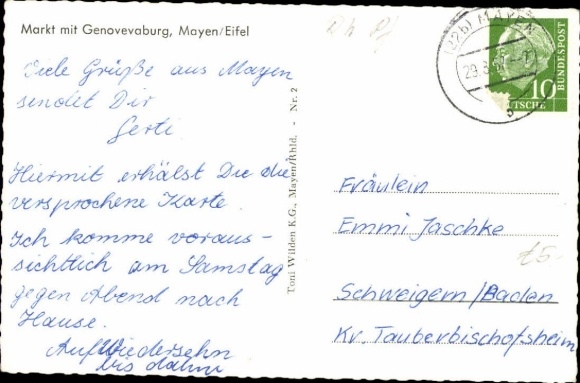 Markt mit Genovevaburg, Mayen/Eifel
Viele Grüße aus Mayen
sendet Dir
Gerti.
Hiermit erhälst Du die
versprochene Karte.
Ich komme voraus-
sichtlich am Samstag
gegen Abend nach
Hause.
Auf Wiedersehn
bis dahin
Toni Wilden K.G., Mayen/Rhld. - Nr. 2
MAYEN
DEUTSCHE BUNDESPOST
10
Fräulein
Emmi Jaschke
Schweigern/Baden
Kr. Tauberbischofsheim